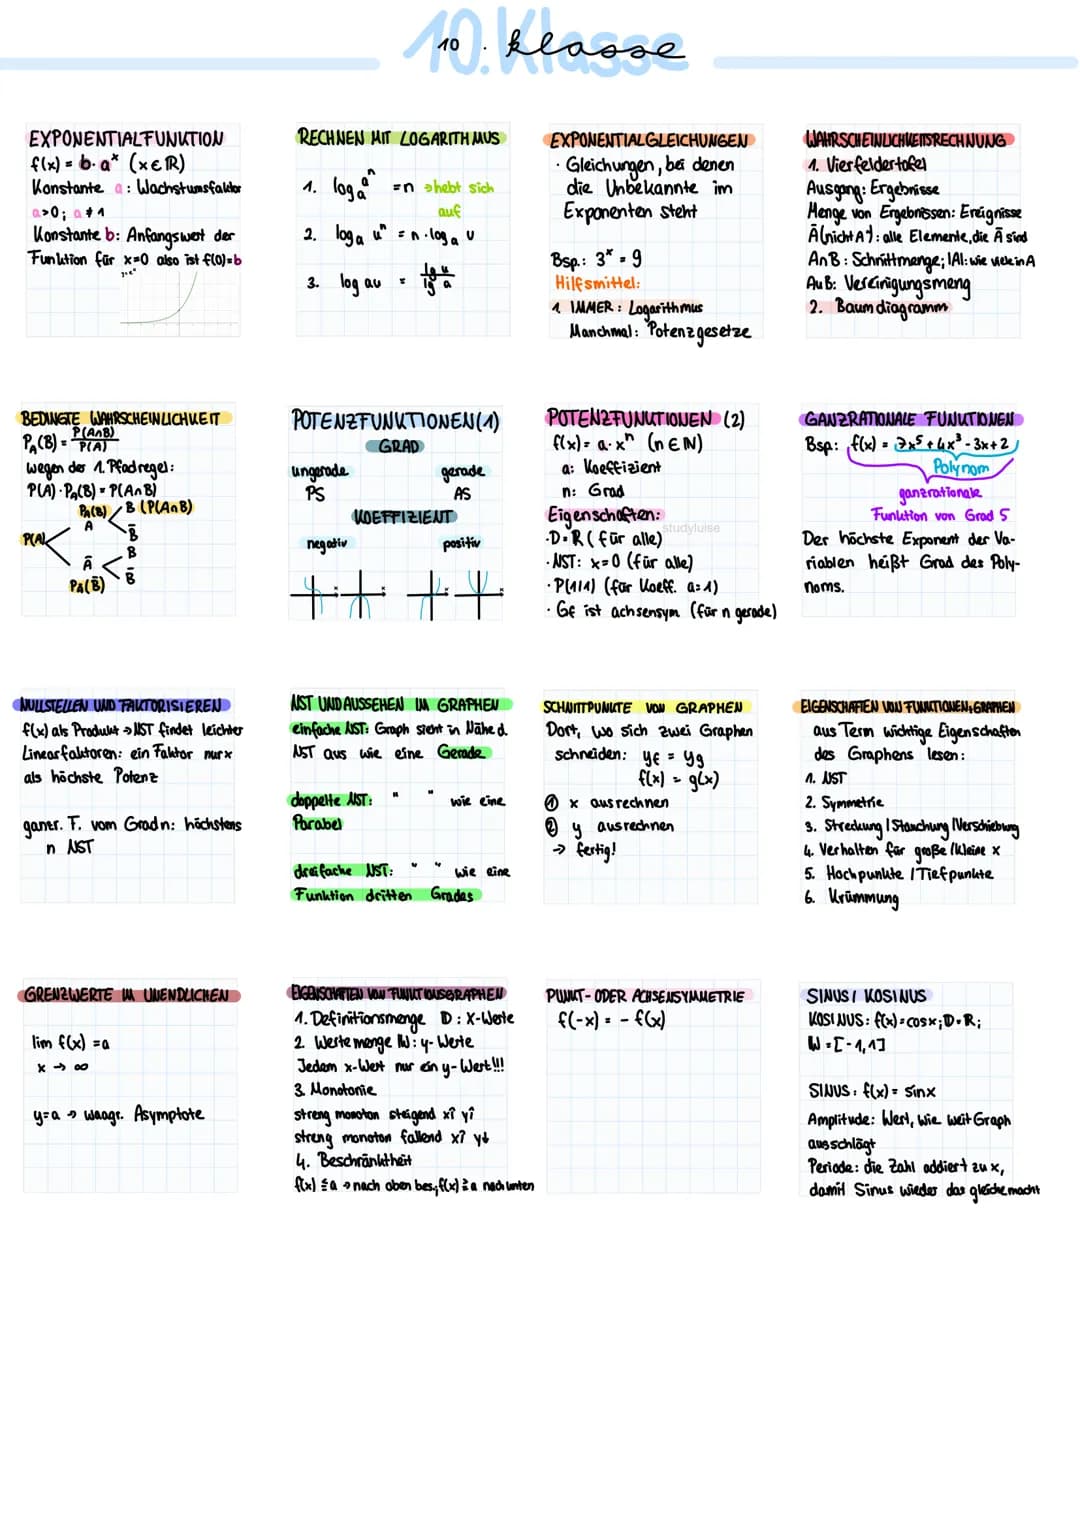 10. Klasse
10. klasse
EXPONENTIALFUNKTION
f(x) = b· aˣ (x ∈ ℝ)
Konstante a: Wachstumsfaktor
a>0; a ≠ 1
Konstante b: Anfangswert der
Funktion für x=0 also ist f(0)=b
RECHNEN MIT LOGARITHMUS
1. logₐ aⁿ = n → hebt sich
auf
2. logₐ uⁿ = n · logₐ u
3. log au = lg u / lg a
EXPONENTIALGLEICHUNGEN
· Gleichungen, bei denen
die Unbekannte im
Exponenten steht
Bsp.: 3ˣ = 9
Hilfsmittel:
1 IMMER: Logarithmus
Manchmal: Potenzgesetze
WAHRSCHEINLICHKEITSRECHNUNG
1. Vierfeldertafel
Ausgang: Ergebnisse
Menge von Ergebnissen: Ereignisse
Ā (nicht A): alle Elemente, die Ā sind
A∩B: Schnittmenge; |A|: wie viele in A
A∪B: Vereinigungsmeng
2. Baumdiagramm
BEDINGTE WAHRSCHEINLICHKEIT
P_A(B) = P(A∩B) / P(A)
wegen der 1. Pfadregel:
P(A) · P_A(B) = P(A∩B)
P_A(B) B (P(A∩B)
A B̄
P(A)
B
Ā B̄
P_A(B̄)
POTENZFUNKTIONEN (1)
GRAD
ungerade gerade
PS AS
KOEFFIZIENT
negativ positiv
POTENZFUNKTIONEN (2)
f(x) = a · xⁿ (n ∈ ℕ)
a: Koeffizient
n: Grad
Eigenschaften:
studyluise
· D=R (für alle)
· NST: x=0 (für alle)
· P(1|1) (für Koeff. a=1)
· Gf ist achsensym (für n gerade)
GANZRATIONALE FUNKTIONEN
Bsp: f(x) = 7x⁵ + 4x³ - 3x + 2
Polynom
ganzrationale
Funktion von Grad 5
Der höchste Exponent der Va-
riablen heißt Grad des Poly-
noms.
NULLSTELLEN UND FAKTORISIEREN
f(x) als Produkt → NST findet leichter
Linearfaktoren: ein Faktor nur x
als höchste Potenz
ganzr. F. vom Grad n: höchstens
n NST
NST UND AUSSEHEN IM GRAPHEN
einfache NST: Graph sieht in Nähe d.
NST aus wie eine Gerade
doppelte NST: " " wie eine
Parabel
dreifache NST: " " wie eine
Funktion dritten Grades
SCHNITTPUNKTE VON GRAPHEN
Dort, wo sich zwei Graphen
schneiden: yf = yg
f(x) = g(x)
① x ausrechnen
② y ausrechnen
→ fertig!
EIGENSCHAFTEN VON FUNKTIONEN, GRAPHEN
aus Term wichtige Eigenschaften
des Graphens lesen:
1. NST
2. Symmetrie
3. Streckung / Stauchung / Verschiebung
4. Verhalten für große / kleine x
5. Hochpunkte / Tiefpunkte
6. Krümmung
GRENZWERTE IM UNENDLICHEN
lim f(x) = a
x → ∞
y=a → waagr. Asymptote
EIGENSCHAFTEN VON FUNKTIONSGRAPHEN
1. Definitionsmenge D: x-Werte
2. Wertemenge W: y-Werte
Jedem x-Wert nur ein y-Wert!!!
3. Monotonie
streng monoton steigend x↑ y↑
streng monoton fallend x↑ y↓
4. Beschränktheit
f(x) ≤ a → nach oben bes; f(x) ≥ a nach unten
PUNKT- ODER ACHSENSYMMETRIE
f(-x) = - f(x)
SINUS / KOSINUS
KOSINUS: f(x) = cosx; D=R;
W = [-1,1]
SINUS: f(x) = sinx
Amplitude: Wert, wie weit Graph
ausschlägt
Periode: die Zahl addiert zu x,
damit Sinus wieder das gleiche macht